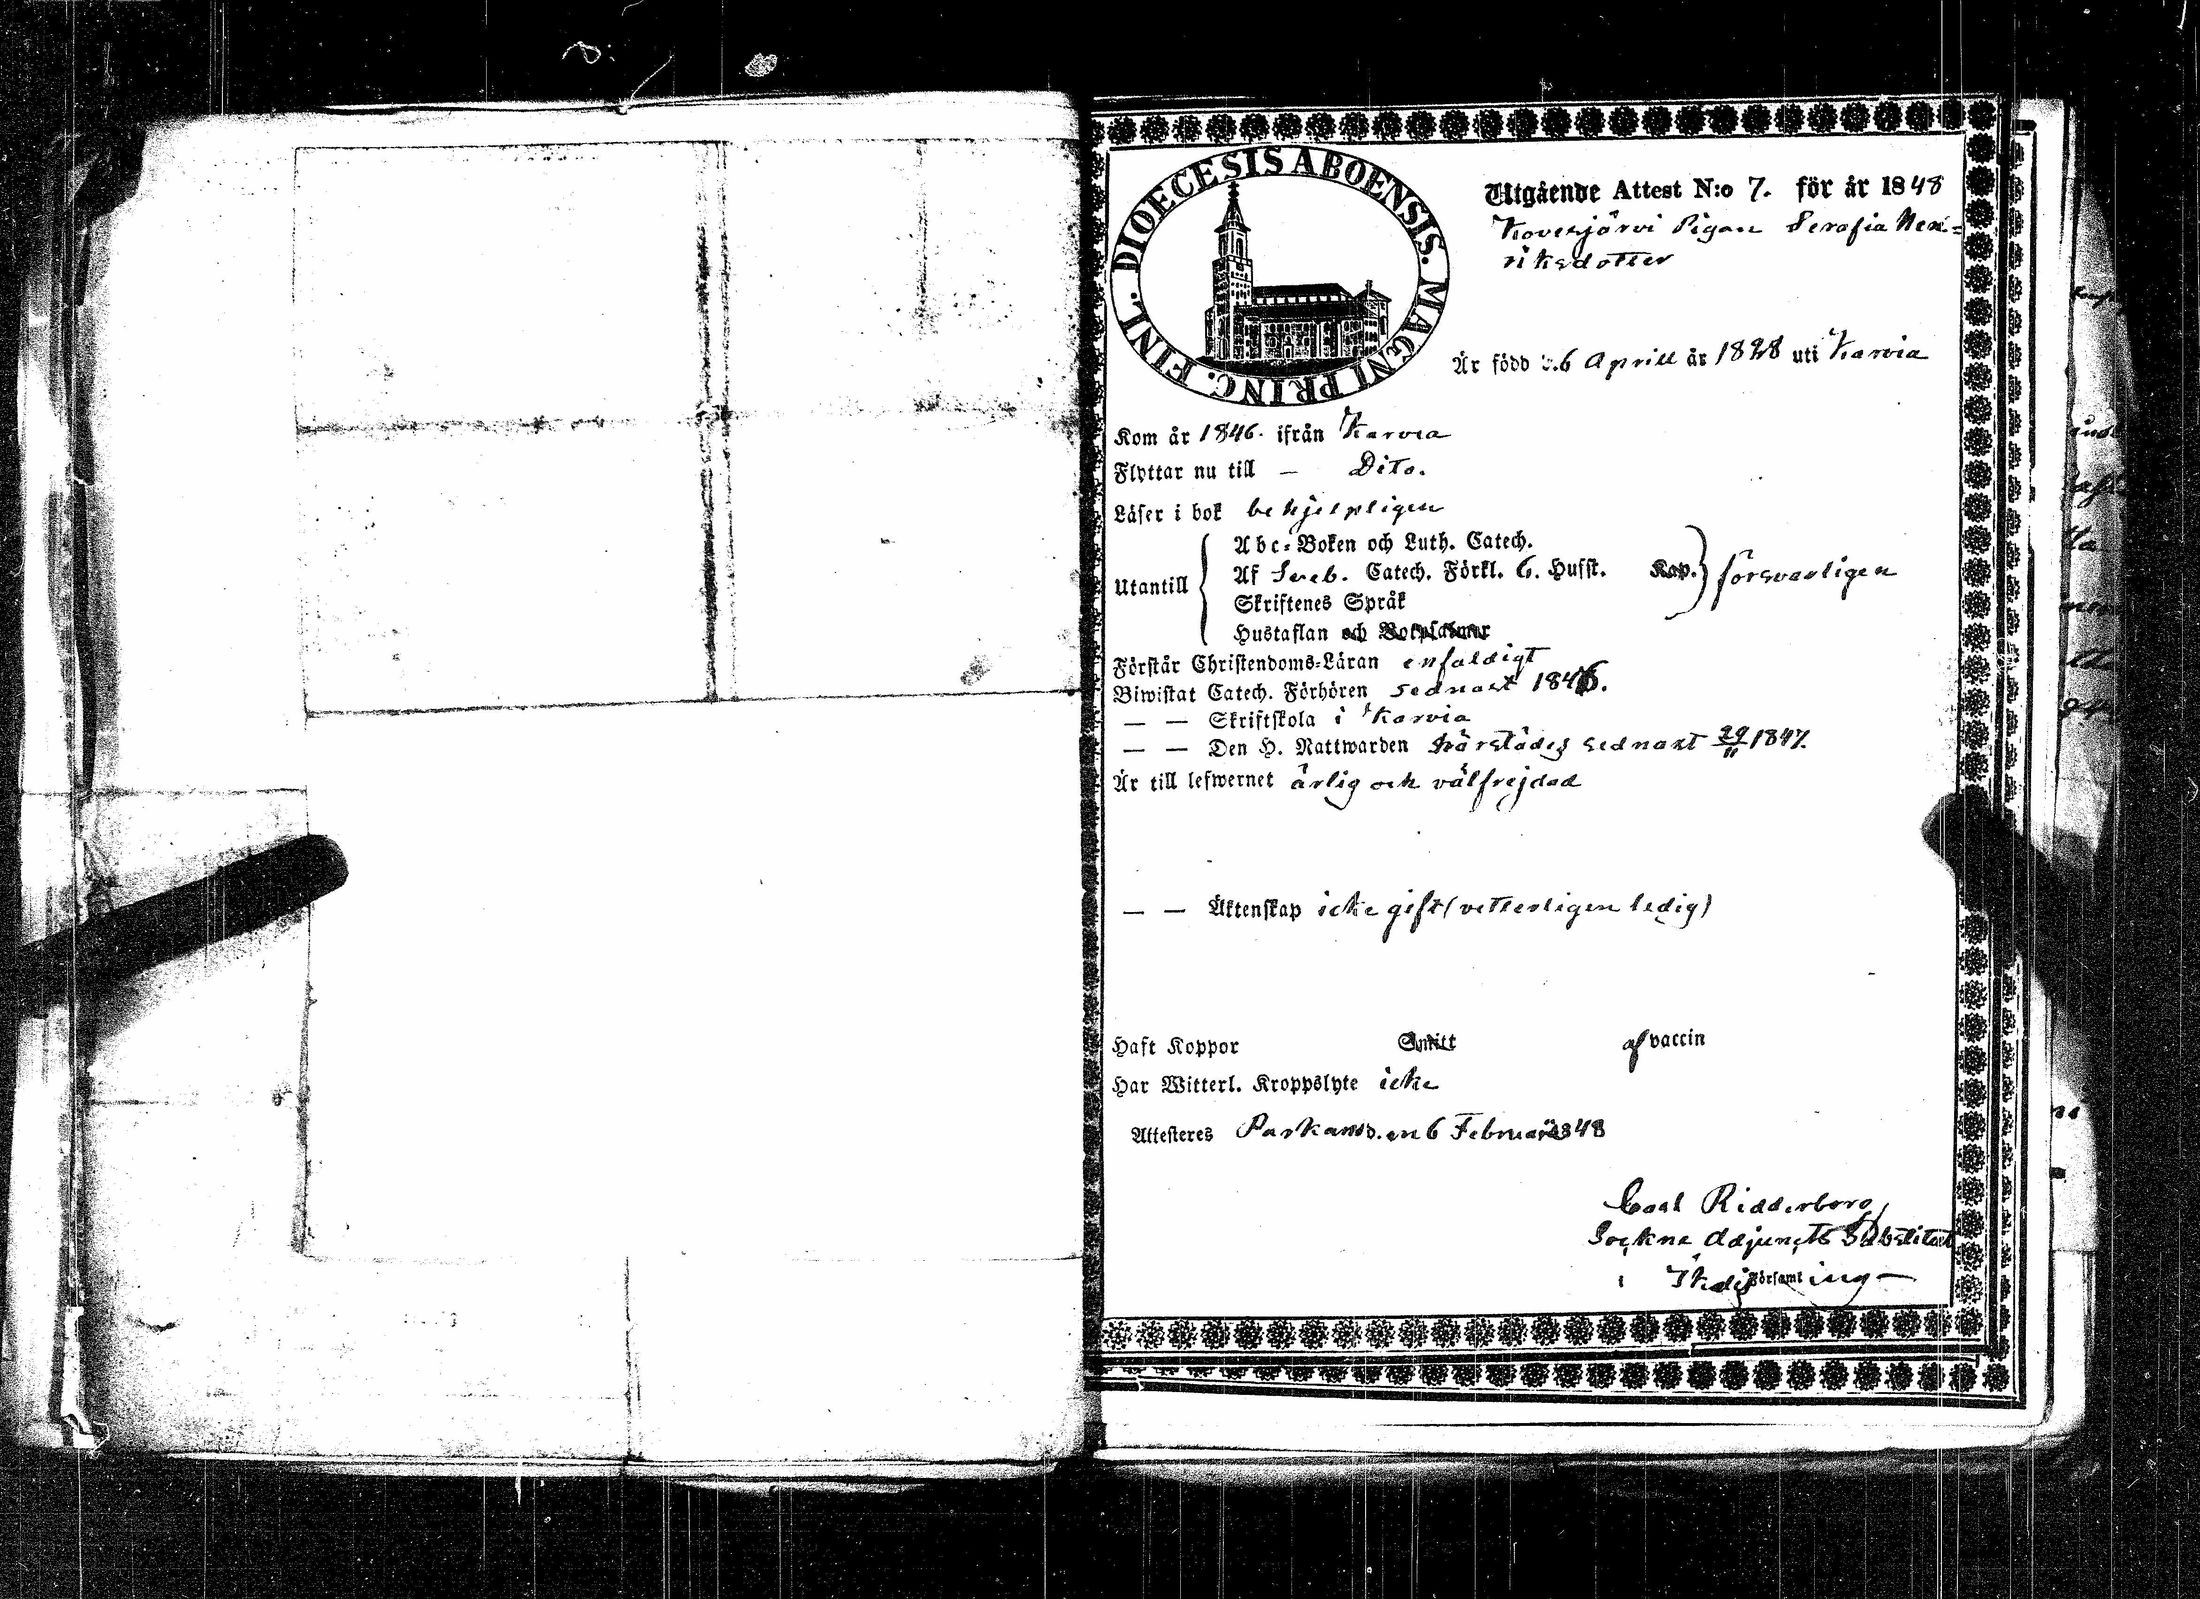 DIOECESIS ABOENSIS. MAGNI PRINC. FINL.
Utgående Attest N:o 7. för år 1848
Kovesjärvi Pigan Serafia Hen=
riksdotter
Är född 26 Aprill år 1828 uti Karvia
Kom år 1846. ifrån Karvia
Flyttar nu till — Dito.
Läser i bok behjelpligen
Utantill
Abc-Boken och Luth. Catech.
Af Sveb. Catech. Förkl. 6. Hufst. Kap.
Skriftenes Språk
Hustaflan och Botpsalmer
försvarligen
Förstår Christendoms-Läran enfaldigt
Biwistat Catech. Förhören sednast 1846.
— — Skriftskola i Karvia
— — Den H. Nattwarden härstädes sednast 29/11 1847.
Är till lefwernet ärlig och välfrejdad
— — Äktenskap icke gift (vetterligen ledig)
Haft Koppor Smitt af vaccin
Har Witterl. Kroppslyte icke
Attesteres Parkano d. en 6 Februari 1848
Carl Ridderborg
Sockne Adjuncts Substitut
i Församling